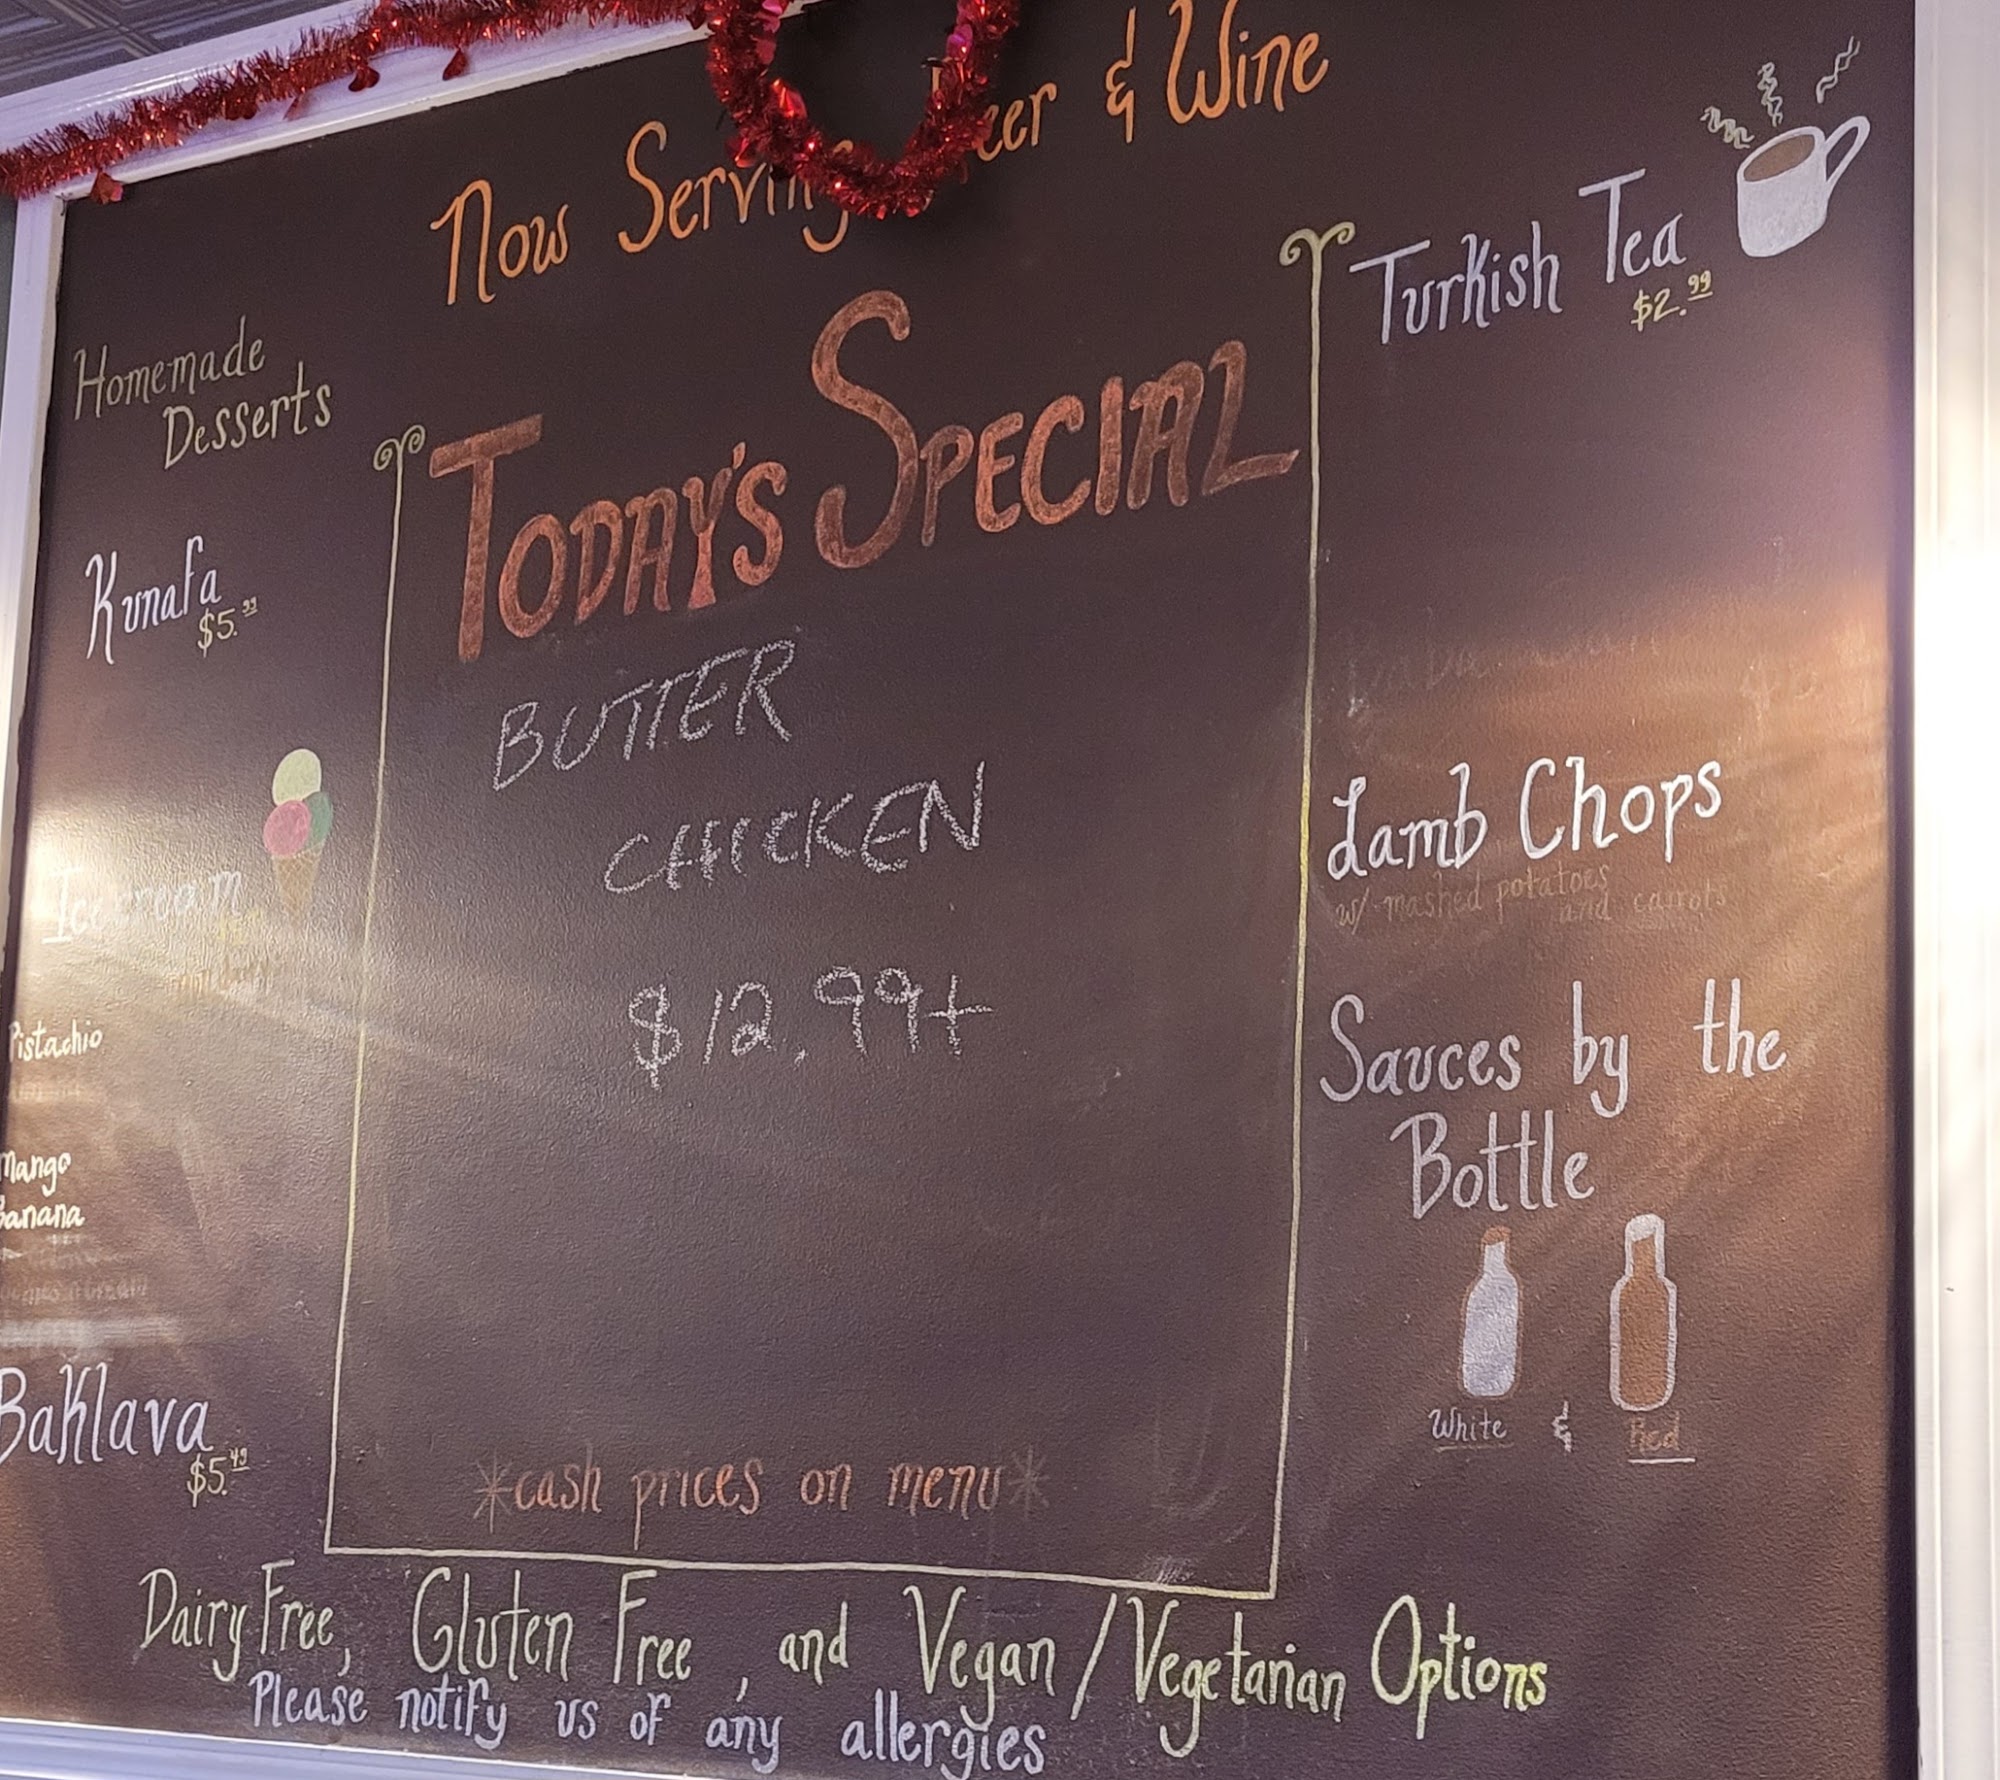 Now Serving Beer & Wine
Homemade
Desserts
Kunafa
$5.99
Ice cream
Pistachio
Mango
Banana
Baklava
$5.49
Today's Special
BUTTER
CHICKEN
$12.99+
*cash prices on menu*
Turkish Tea
$2.99
Lamb Chops
w/ mashed potatoes
and carrots
Sauces by the
Bottle
White & Red
Dairy Free, Gluten Free, and Vegan/Vegetarian Options
Please notify us of any allergies